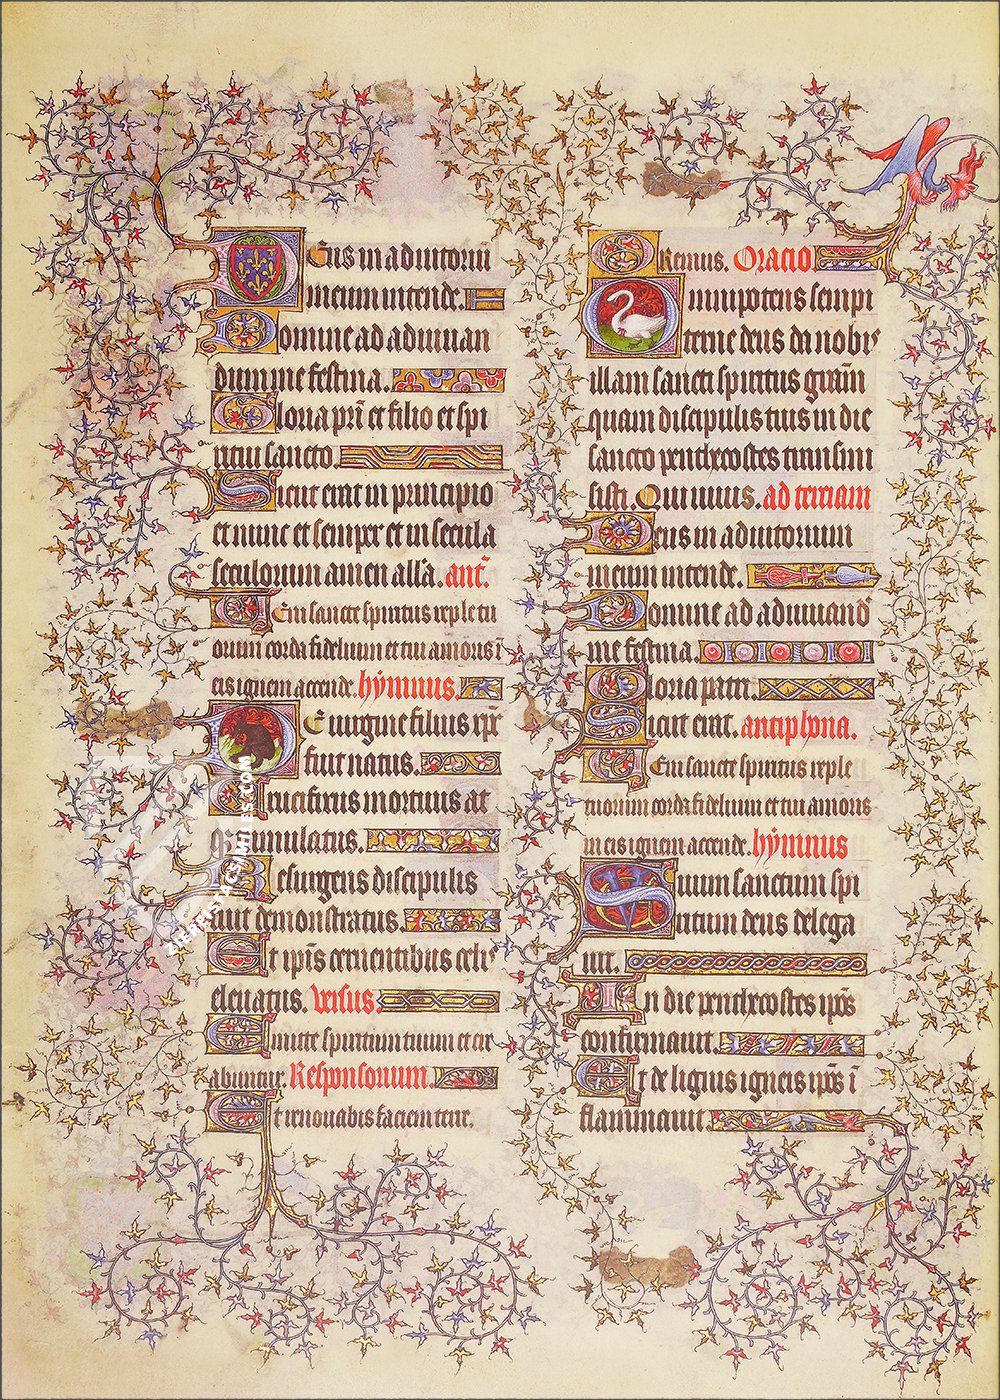 Deus in adiutoriū
meum intende.
Domine ad adiuuan
dum me festina.
Gloria pr̄i et filio et spi
ritui sancto.
Sicut erat in principio
et nunc et semper et in secula
seculorum amen all'a. ant̄.
Ueni sancte spiritus reple tu
orum corda fidelium et tui amoris ī
eis ignem accende. hymnus.
De uirgine filius xp̄c
fuit natus.
Crucifixus mortuus at
q; tumulatus.
Resurgens discipulis
fuit demonstratus.
Et ip̄is cernentibus celis
eleuatus. Versus.
Emitte spiritum tuum et cre
abuntur. Responsorium.
Et renouabis faciem terre.
Oremus. Oracio.
Omnipotens sempi
terne deus da nobis
illam sancti spiritus grām
quam discipulis tuis in die
sancto penthecostes tran
sisti. Qui uiuis. ad terciam
Deus in adiutorium
meum intende.
Domine ad adiuuand̄
me festina.
Gloria patri.
Sicut erat. antiphona.
Ueni sancte spiritus reple
tuorum corda fidelium et tui amoris
in eis ignem accende. hymnus
Suum sanctum spi
ritum deus delega
uit.
In die penthecostes ip̄os
confirmauit.
Et de liguis igneis ip̄os ī
flammauit.
ZIEREISFACSIMILES.COM